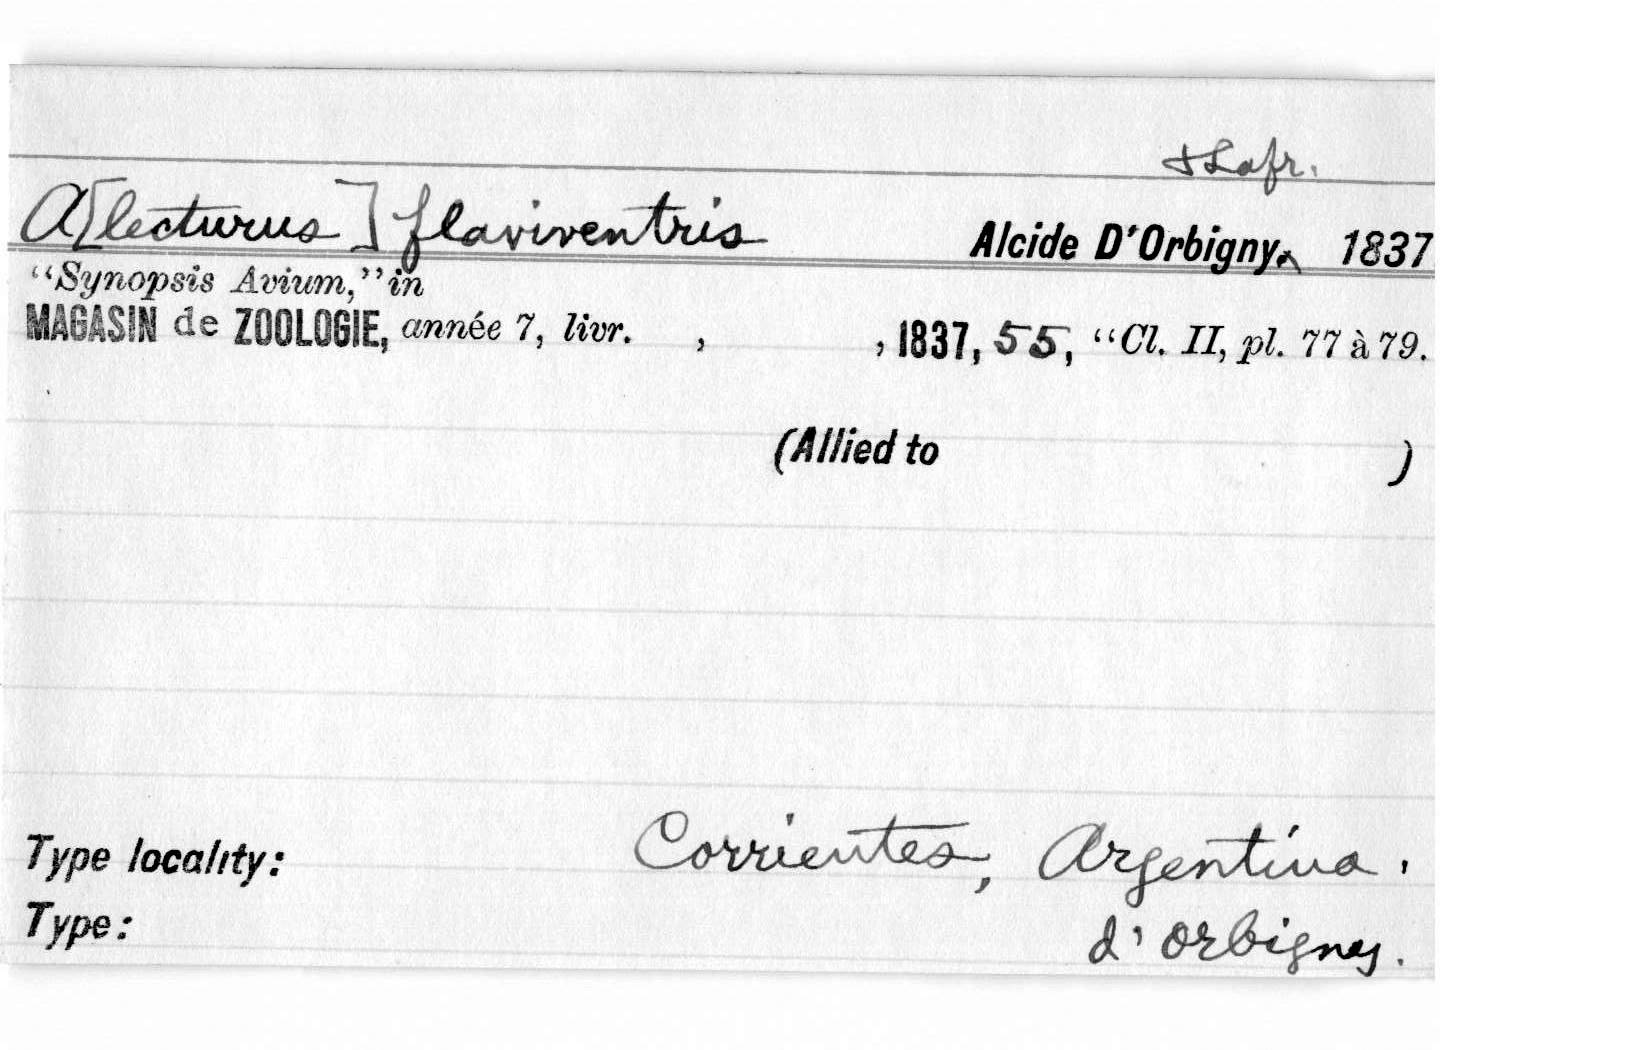 & Lafr.
A[lecturus] flaviventris Alcide D'Orbigny‸ 1837
“Synopsis Avium,” in
MAGASIN de ZOOLOGIE, année 7, livr. , , 1837, 55, “Cl. II, pl. 77 à 79.
(Allied to )
Type locality: Corrientes, Argentina.
Type: d'Orbigny.